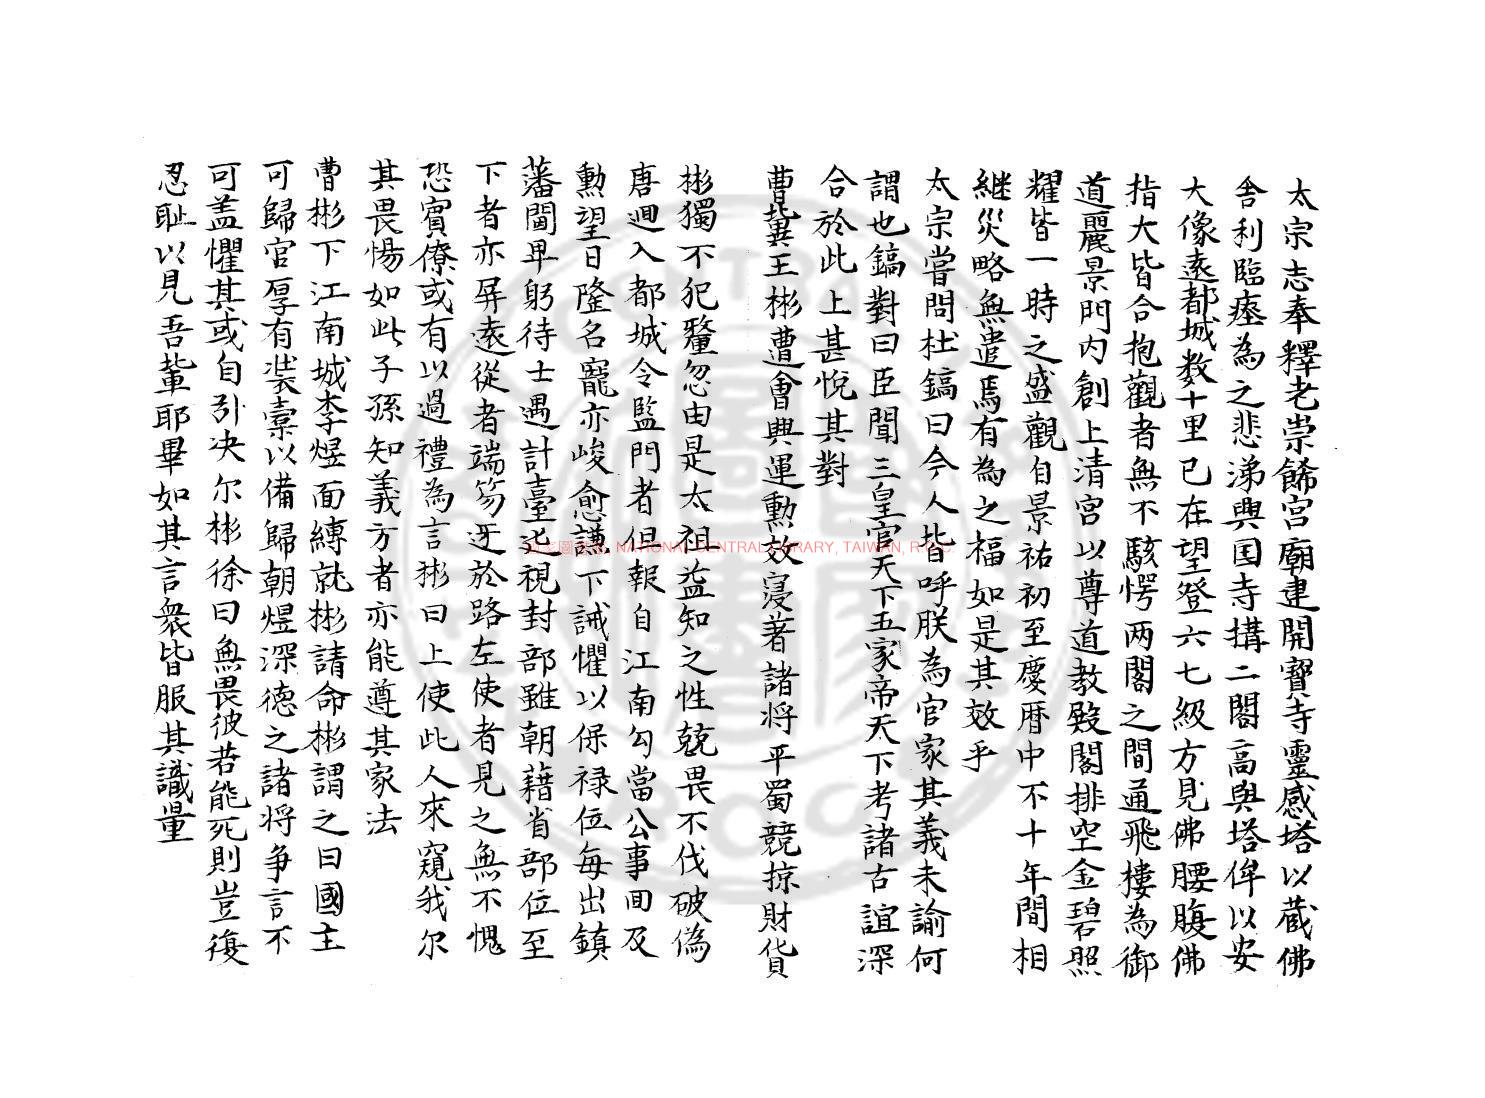 太宗志奉釋老崇餙宮廟建開寶寺靈感塔以蔵佛
舍利臨瘞為之悲涕興国寺搆二閣高與塔侔以安
大像遠都城数十里已在望登六七級方見佛腰腹佛
指大皆合抱觀者無不駭愕两閣之間通飛樓為御
道麗景門内創上清宮以尊道教殿閣排空金碧照
耀皆一時之盛觀自景祐初至慶暦中不十年間相
継災略無遺焉有為之福如是其效乎
太宗嘗問杜鎬曰今人皆呼朕為官家其義未諭何
謂也鎬對曰臣聞三皇官天下五家帝天下考諸古誼深
合於此上甚悅其對
曹冀王彬遭會興運勲效寖著諸将平蜀競掠財貨
彬獨不犯釐忽由是太祖益知之性兢畏不伐破偽
唐迴入都城令監門者但報自江南勾當公事回及
勲望日隆名寵亦峻愈謙下誡懼以保禄位每出鎮
藩閫卑躬待士遇計臺巡視封部雖朝藉省部位至
下者亦屏遠從者端笏迓於路左使者見之無不愧
恐賓僚或有以過禮為言彬曰上使此人來窺我尔
其畏惕如此子孫知義方者亦能遵其家法
曹彬下江南城李煜面縛就彬請命彬謂之曰國主
可歸官厚有裝橐以備歸朝煜深德之諸将争言不
可盖懼其或自引决尔彬徐曰無畏彼若能死則豈復
忍耻以見吾軰耶畢如其言衆皆服其識量
國家圖書館, NATIONAL CENTRAL LIBRARY, TAIWAN, R.O.C.